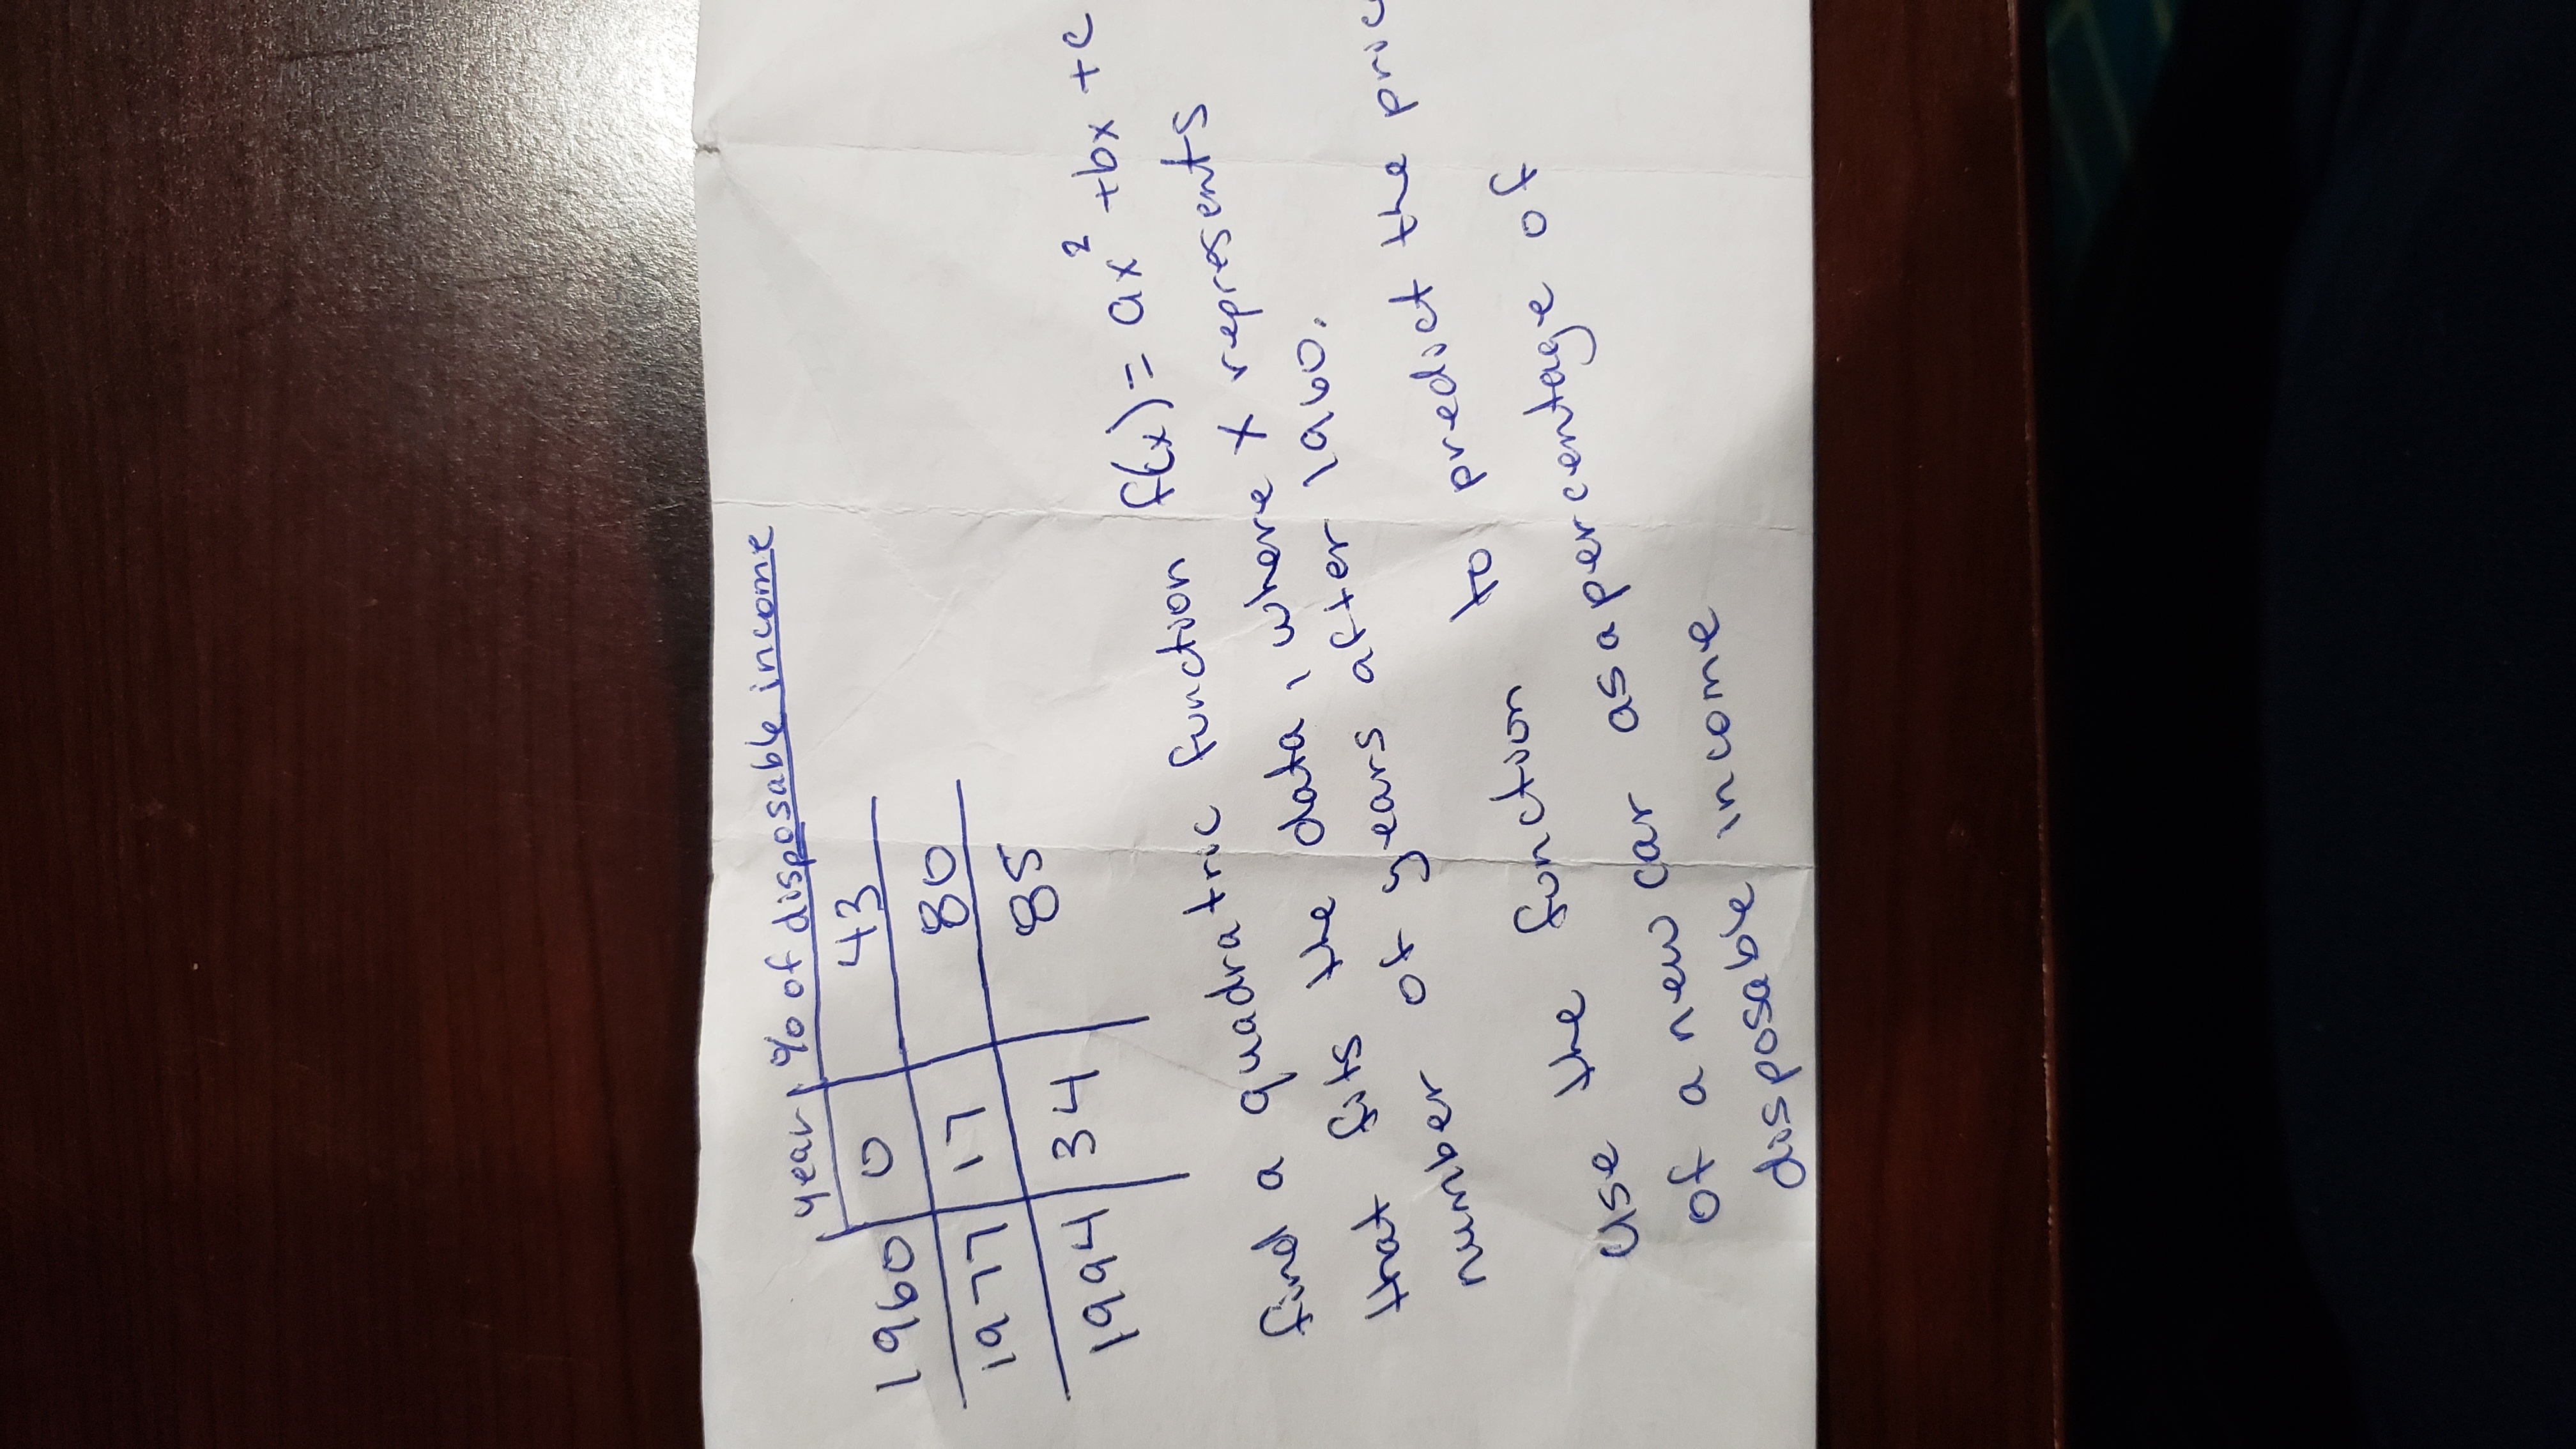 year % of disposable income
1960 0 43
1977 17 80
1994 34 85
find a quadratric function f(x) = ax² +bx +c
that fits the data, where x represents
number of years after 1960.
use the function to predict the pric
of a new car as a percentage of
disposable income